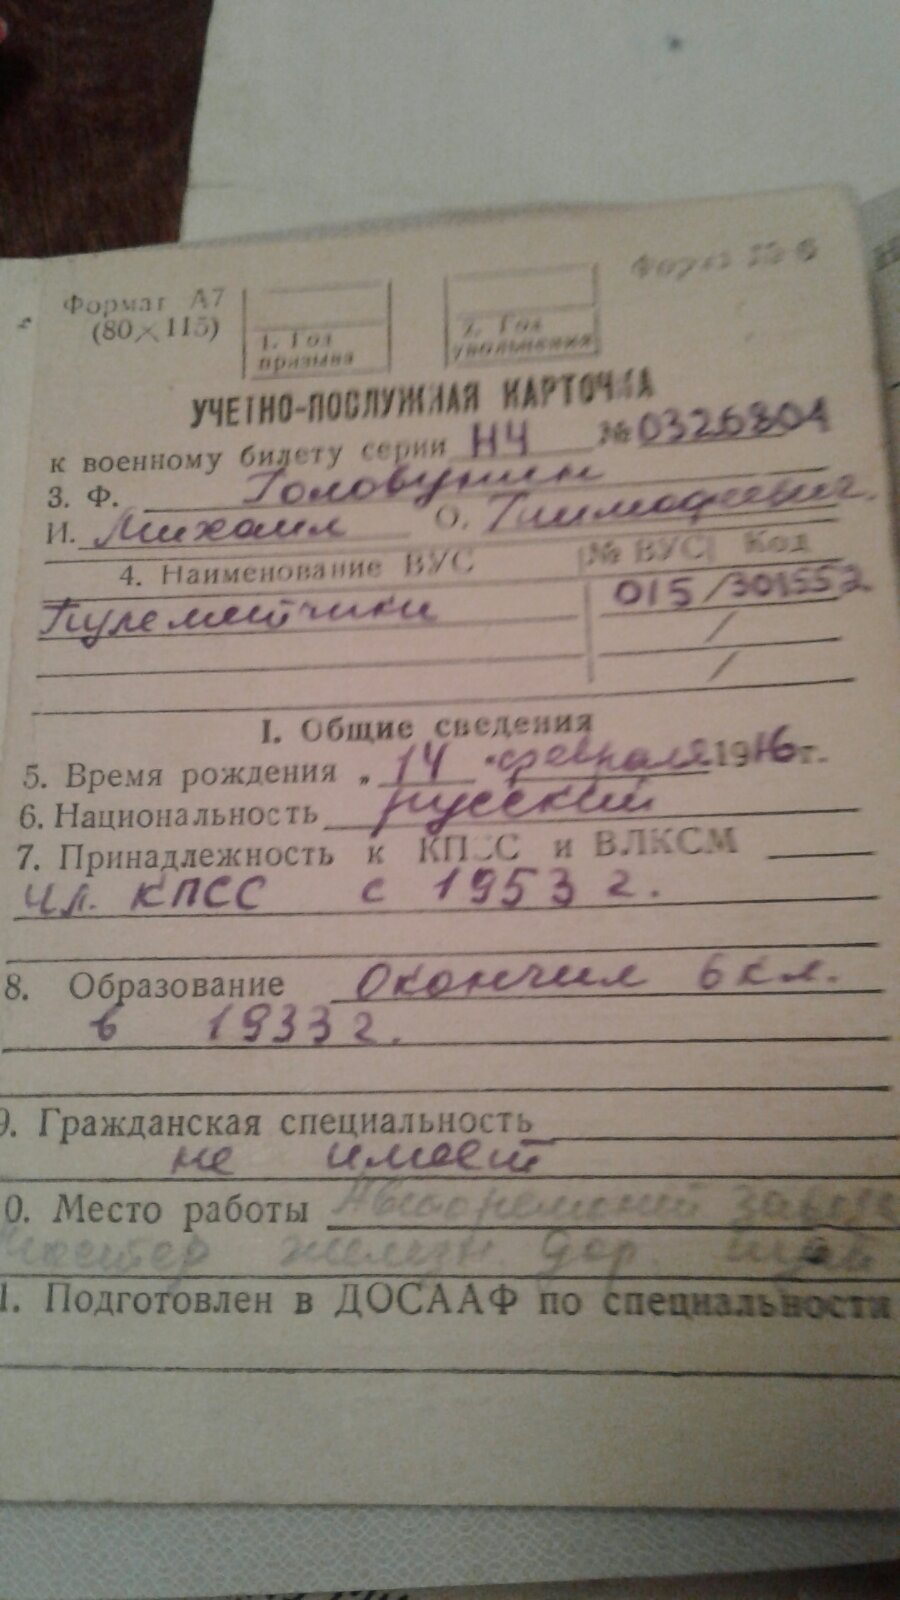 Формат А7
(80×115)
1. Год
призыва
2. Год
увольнения
Форма № 6
УЧЕТНО-ПОСЛУЖНАЯ КАРТОЧКА
к военному билету серии НЧ № 0326804
3. Ф. Головунин
И. Михаил О. Тимофеевич.
4. Наименование ВУС № ВУС Код
Пулеметчики 015/301552.
/
/
I. Общие сведения
5. Время рождения „14 " февраля 1916 г.
6. Национальность русский
7. Принадлежность к КПСС и ВЛКСМ
чл. КПСС с 1953 г.
8. Образование Окончил 6 кл.
в 1933 г.
9. Гражданская специальность
не имеет
0. Место работы Авторемонтн завод
мастер железн. дор.
1. Подготовлен в ДОСААФ по специальности